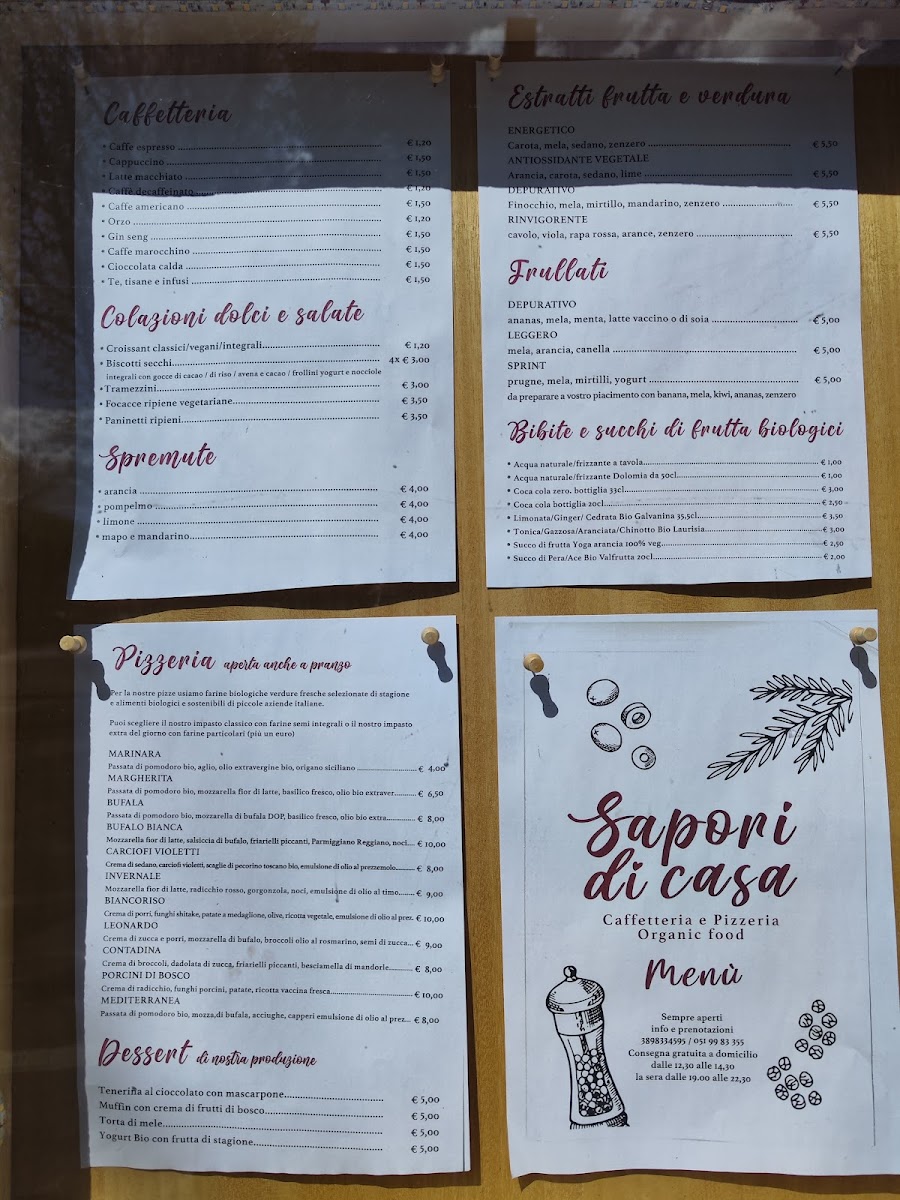 Caffetteria
• Caffe espresso € 1,20
• Cappuccino € 1,50
• Latte macchiato € 1,50
• Caffè decaffeinato € 1,20
• Caffe americano € 1,50
• Orzo € 1,20
• Gin seng € 1,50
• Caffe marocchino € 1,50
• Cioccolata calda € 1,50
• Te, tisane e infusi € 1,50
Colazioni dolci e salate
• Croissant classici/vegani/integrali € 1,20
• Biscotti secchi 4x € 3,00
integrali con gocce di cacao / di riso / avena e cacao / frollini yogurt e nocciole
• Tramezzini € 3,00
• Focacce ripiene vegetariane € 3,50
• Paninetti ripieni € 3,50
Spremute
• arancia € 4,00
• pompelmo € 4,00
• limone € 4,00
• mapo e mandarino € 4,00
Estratti frutta e verdura
ENERGETICO
Carota, mela, sedano, zenzero € 5,50
ANTIOSSIDANTE VEGETALE
Arancia, carota, sedano, lime € 5,50
DEPURATIVO
Finocchio, mela, mirtillo, mandarino, zenzero € 5,50
RINVIGORENTE
cavolo, viola, rapa rossa, arance, zenzero € 5,50
Frullati
DEPURATIVO
ananas, mela, menta, latte vaccino o di soia € 5,00
LEGGERO
mela, arancia, canella € 5,00
SPRINT
prugne, mela, mirtilli, yogurt € 5,00
da preparare a vostro piacimento con banana, mela, kiwi, ananas, zenzero
Bibite e succhi di frutta biologici
• Acqua naturale/frizzante a tavola € 1,00
• Acqua naturale/frizzante Dolomia da 50cl € 1,00
• Coca cola zero. bottiglia 33cl € 3,00
• Coca cola bottiglia 20cl € 2,50
• Limonata/Ginger/ Cedrata Bio Galvanina 35,5cl € 3,50
• Tonica/Gazzosa/Aranciata/Chinotto Bio Laurisia € 3,00
• Succo di frutta Yoga arancia 100% veg € 2,50
• Succo di Pera/Ace Bio Valfrutta 20cl € 2,00
Pizzeria aperta anche a pranzo
Per la nostre pizze usiamo farine biologiche verdure fresche selezionate di stagione
e alimenti biologici e sostenibili di piccole aziende italiane.
Puoi scegliere il nostro impasto classico con farine semi integrali o il nostro impasto
extra del giorno con farine particolari (più un euro)
MARINARA
Passata di pomodoro bio, aglio, olio extravergine bio, origano siciliano € 4,00
MARGHERITA
Passata di pomodoro bio, mozzarella fior di latte, basilico fresco, olio bio extraver € 6,50
BUFALA
Passata di pomodoro bio, mozzarella di bufala DOP, basilico fresco, olio bio extra € 8,00
BUFALO BIANCA
Mozzarella fior di latte, salsiccia di bufalo, friarielli piccanti, Parmiggiano Reggiano, noci € 10,00
CARCIOFI VIOLETTI
Crema di sedano, carciofi violetti, scaglie di pecorino toscano bio, emulsione di olio al prezzemolo € 8,00
INVERNALE
Mozzarella fior di latte, radicchio rosso, gorgonzola, noci, emulsione di olio al timo € 9,00
BIANCORISO
Crema di porri, funghi shitake, patate a medaglione, olive, ricotta vegetale, emulsione di olio al prez. € 10,00
LEONARDO
Crema di zucca e porri, mozzarella di bufalo, broccoli olio al rosmarino, semi di zucca € 9,00
CONTADINA
Crema di broccoli, dadolata di zucca, friarielli piccanti, besciamella di mandorle € 8,00
PORCINI DI BOSCO
Crema di radicchio, funghi porcini, patate, ricotta vaccina fresca € 10,00
MEDITERRANEA
Passata di pomodoro bio, mozza,di bufala, acciughe, capperi emulsione di olio al prez € 8,00
Dessert di nostra produzione
Tenerina al cioccolato con mascarpone € 5,00
Muffin con crema di frutti di bosco € 5,00
Torta di mele € 5,00
Yogurt Bio con frutta di stagione € 5,00
Sapori
di casa
Caffetteria e Pizzeria
Organic food
Menù
Sempre aperti
info e prenotazioni
3898334595 / 051 99 83 355
Consegna gratuita a domicilio
dalle 12,30 alle 14,30
la sera dalle 19.00 alle 22,30